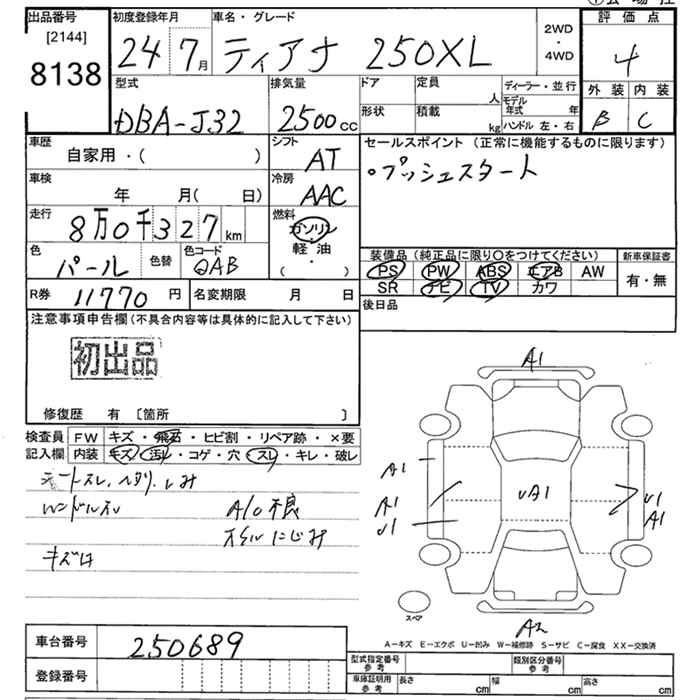 ① 会場控
出品番号 初度登録年月 車名・グレード 評価点
[2144] 24 7月 ティアナ 250XL 2WD・4WD 4
8138
型式 排気量 ドア 定員 人 ディーラー・並行 外装 内装
DBA-J32 2500cc 形状 積載 kg モデル年式 年 ハンドル 左・右 B C
車歴 シフト セールスポイント (正常に機能するものに限ります)
自家用・( ) AT 。プッシュスタート
車検 冷房
年 月( 日) AAC
走行 燃料
8万0千327km ガソリン
軽・油
・( )
色 色替 色コード 装備品(純正品に限り〇をつけてください) 新車保証書
パール QAB PS PW ABS エアB AW 有・無
SR ナビ TV カワ
R券 11770円 名変期限 月 日 後日品
注意事項申告欄(不具合内容等は具体的に記入して下さい)
初出品
修復歴 有 〔箇所 〕
検査員 FW キズ・飛石・ヒビ割・リペア跡・×要
記入欄 内装 キズ・汚レ・コゲ・穴・スレ・キレ・破レ
シミ
A/C不良
オイルにじみ
キズ
A1
A1
A1
U1
UA1
U1
A1
A2
スペア
A−キズ E−エクボ U−凹み W−補修跡 S−サビ C−腐食 XX−交換済
車台番号 250689
登録番号
型式指定番号 参考 類別区分番号 参考
車庫証明用 参考 長さ cm 幅 cm 高さ cm